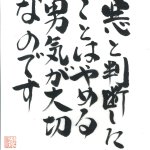 悪と判断した
ことはやめる
男気が大切
なのです